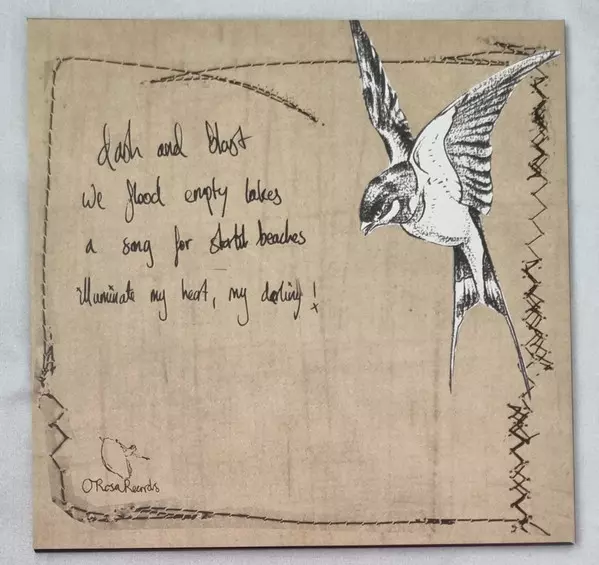 dash and blast
we flood empty lakes
a song for starlit beaches
illuminate my heart, my darling!
O Rosa Records